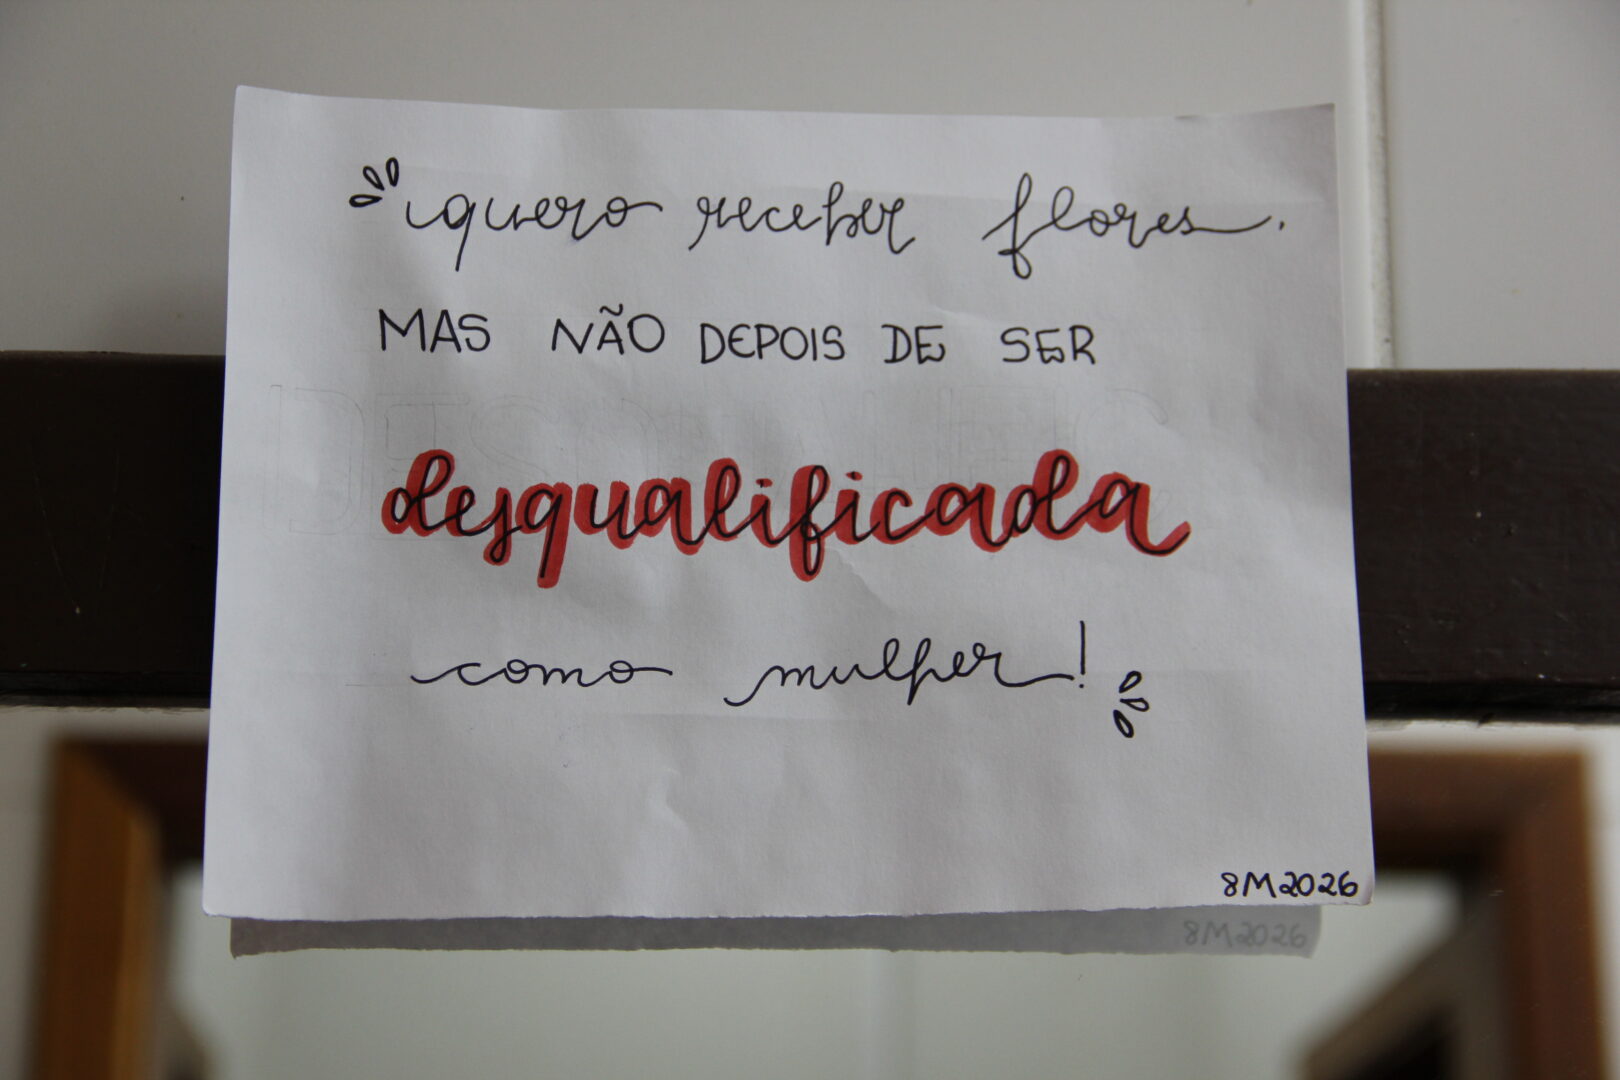 quero receber flores.
MAS NÃO DEPOIS DE SER
desqualificada
como mulher!
8M2026
8M2026